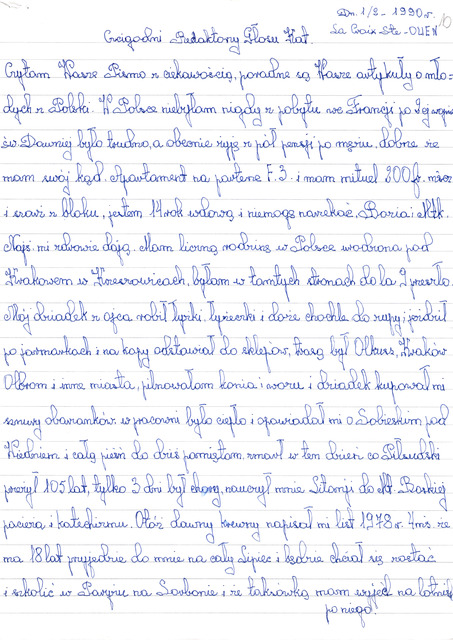 Dn. 1/2 - 1990 r.
La Croix Ste - OUEN
10
Czcigodni Redaktorzy Głosu Kat.
Czytam Wasze Pismo z ciekawością, poradne są Wasze artykuły o mło-
dych z Polski. W Polsce niebyłam nigdy z pobytu we Francji po 2ej wojnie
św. Dawniej było trudno, a obecnie żyję z pół pensji po mężu, dobrze że
mam swój kąd. Apartament na parterze F.3. i mam mituel 300 f. miesz
i szarż z bloku, jestem 14 rok wdową i niemogę narzekać, Bozia i Mtk.
Najś. mi zdrowie dają. Mam liczną rodzinę w Polsce urodzona pod
Krakowem w Krzeszowicach, byłam w tamtych stronach do la 9 przeszło.
Mój dziadek z ojca robił łyżki, łyżeczki i duże chochle do zupy; jeździł
po jarmarkach i na kopy odstawiał do sklepów, trasą był Olkusz, Kraków
Olbrom i inne miasta, pilnowałam konia i wozu i dziadek kupował mi
sznury obwarzanków. w pracowni było ciepło i opowiadał mi o Sobieskim pod
Wiedniem i całą pieśń do dziś pamiętam, zmarł w ten dzień co Piłsudski
przeżył 105 lat, tylko 3 dni był chory, nauczył mnie Litanji do Mt. Boskiej
pacierza i katechizmu. Otóż dawny krewny napisał mi list 1978 r. 4 ms. że
ma 18 lat przyjedzie do mnie na cały Lipiec i będzie chciał się zostać
i szkolić w Paryżu na Sorbonie i że taksówką mam wyjść na lotnisk
po niego!